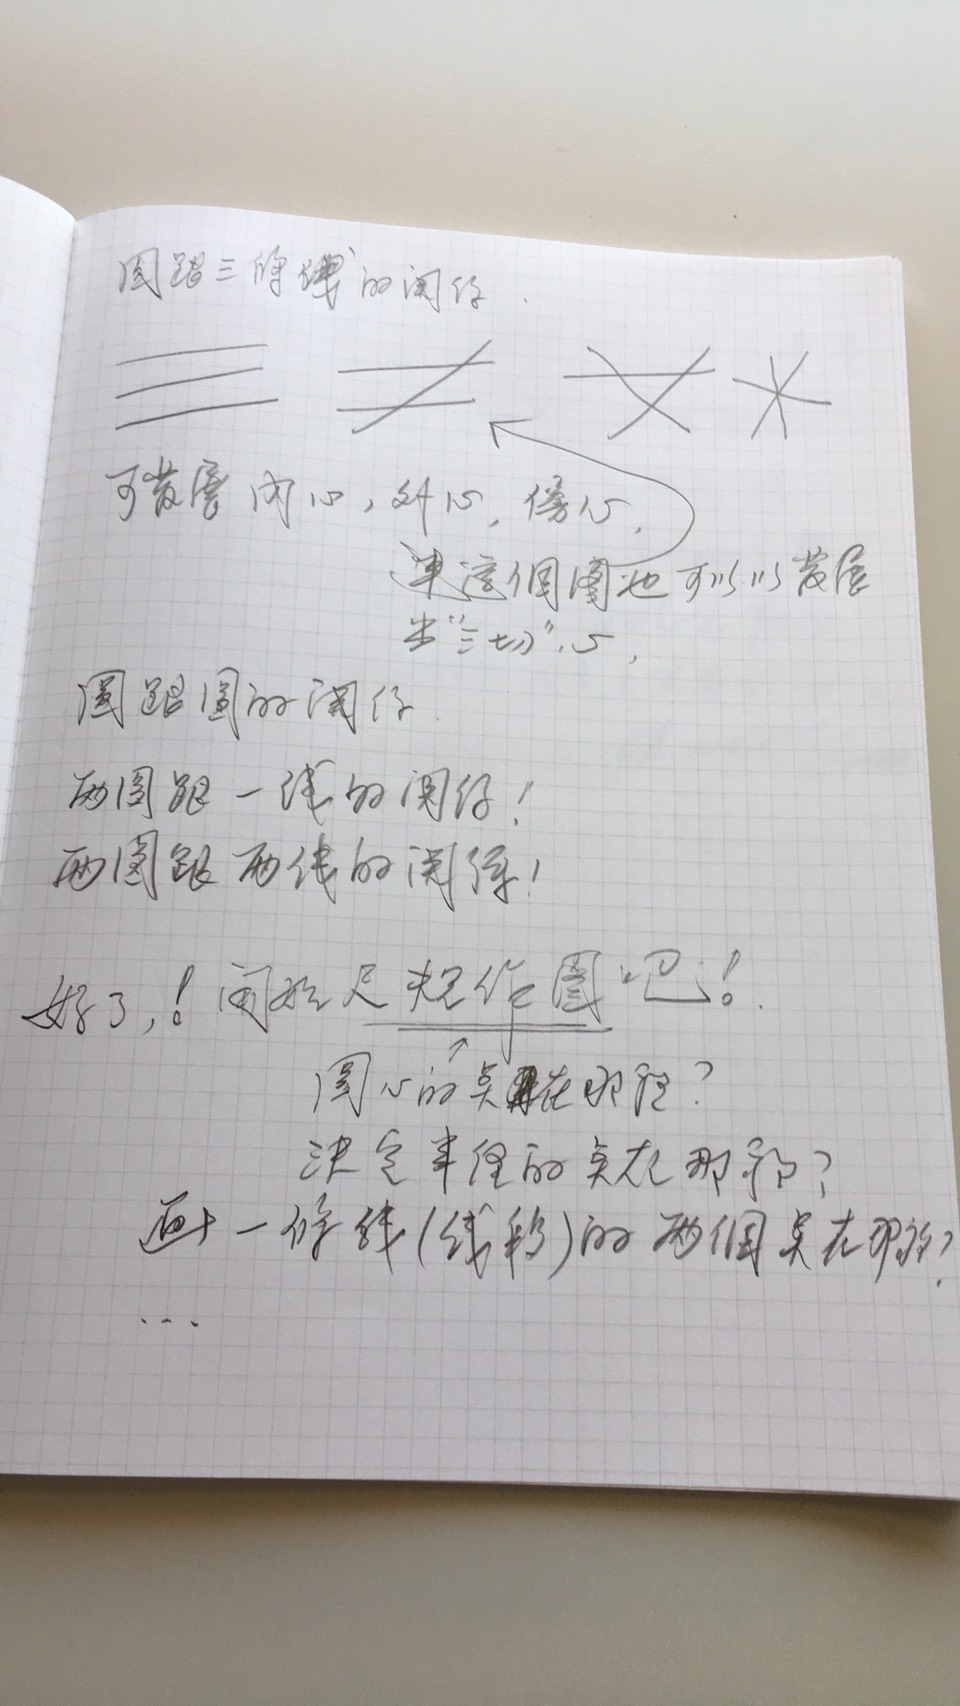 圓跟三條线的関係.
可發展内心,外心,傍心,
連這個圖也可以以發展
出"三切"心,
圓跟圓的関係.
兩圓跟一线的関係!
兩圓跟兩线的関係!
好了,!開始尺規作圖吧!.
圓心的点在那裡?
決定半徑的点在那裡?
畫一條线(线段)的兩個点在那裡?
...